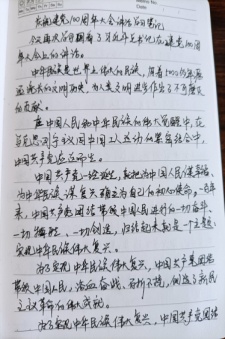 庆祝建党100周年大会讲话学习笔记
今天再次学习了习近平总书记在建党100周
年大会上的讲话。
中华民族是世界上伟大的民族，有着5000多年源
远流长的文明历史，为人类文明进步作出了不可磨灭
的贡献。
在中国人民和中华民族的伟大觉醒中，在
马克思列宁主义同中国工人运动的紧密结合中，
中国共产党应运而生。
中国共产党一经诞生，就把为中国人民谋幸福、
为中华民族谋复兴确立为自己的初心使命。一百年
来，中国共产党团结带领中国人民进行的一切奋斗、
一切牺牲、一切创造，归结起来就是一个主题：
实现中华民族伟大复兴。
为了实现中华民族伟大复兴，中国共产党团结
带领中国人民，浴血奋战、百折不挠，创造了新民
主主义革命的伟大成就。
为了实现中华民族伟大复兴，中国共产党团结